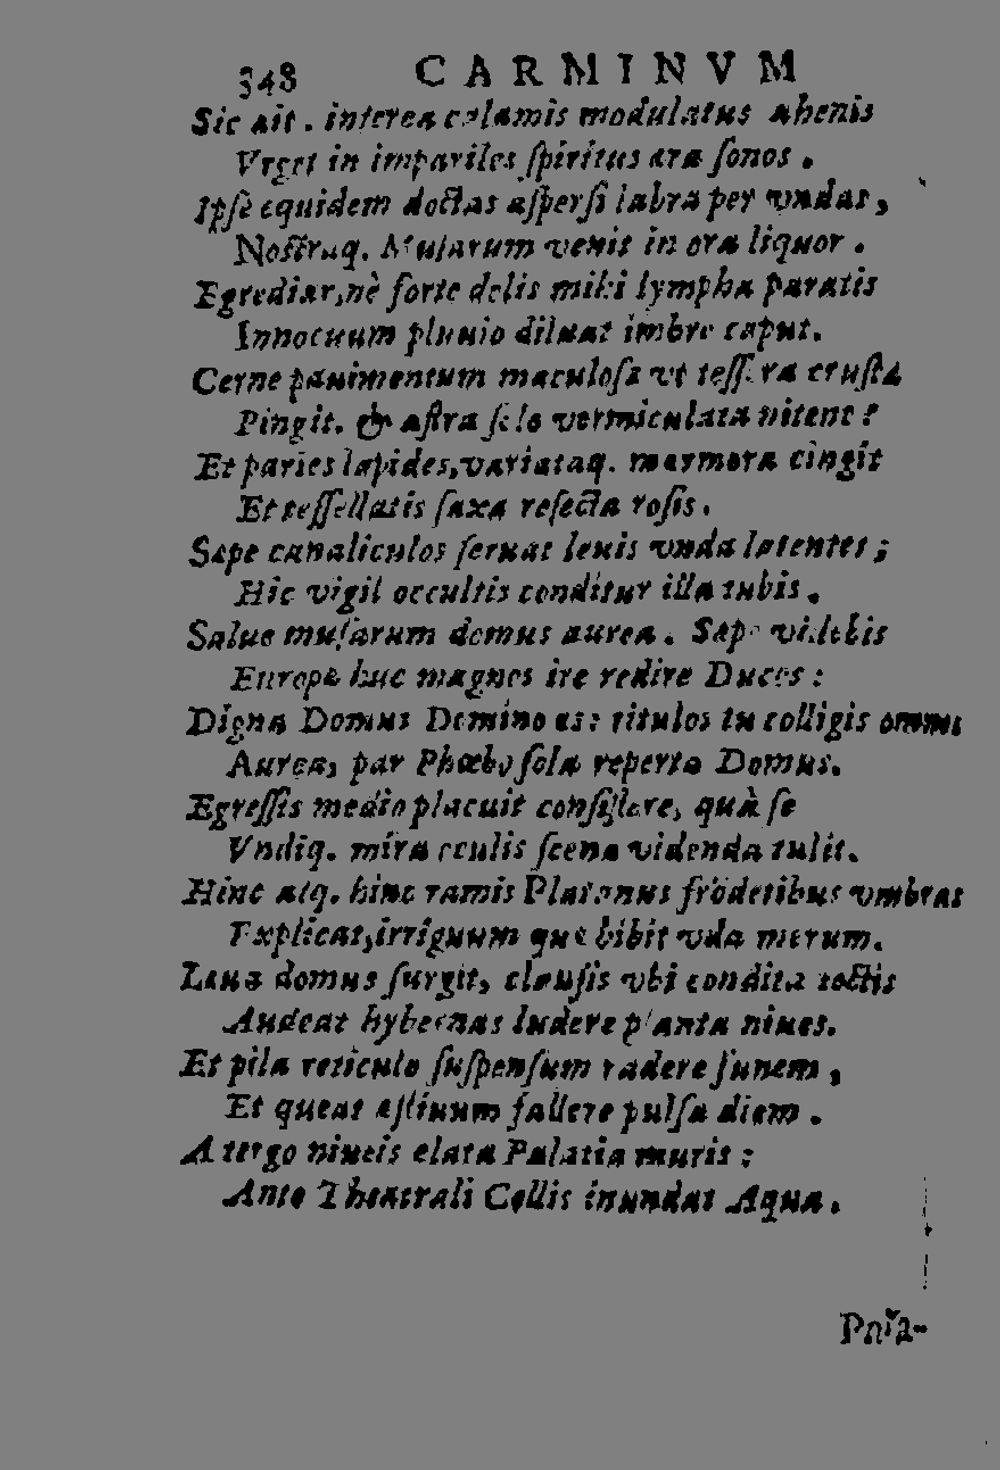 348 CARMINVM
Sic ait. interea calamis modulatus ahenis
Vrget in impariles spiritus æra sonos.
Ipse equidem doctas aspersi labra per vndas,
Nostraq. Musarum venit in ora liquor.
Egrediar, nè forte delis mihi lympha paratis
Innocuum pluuio diluat imbre caput.
Cerne pauimentum maculosa vt tessera crusta
Pingit. & astra solo vermiculata nitent?
Et paries lapides, variataq. marmora cingit
Et tessellatis saxa resecta rosis.
Sæpe canaliculos seruat leuis vnda latentes;
Hic vigil occultis conditur illa tubis.
Salue musarum domus aurea. Sæpe videbis
Europæ huc magnos ire redire Duces:
Digna Domus Domino es: titulos tu colligis omnes
Aurea, par Phœbo sola reperta Domus.
Egressis medio placuit consistere, quà se
Vndiq. mira oculis scena videnda tulit.
Hinc atq. hinc ramis Platanus frōdetibus vmbras
Explicat, irriguum quæ bibit vda merum.
Læua domus surgit, clausis vbi condita tectis
Audeat hybernas ludere planta niues.
Et pila reticulo suspensum radere funem,
Et queat æstiuum fallere pulsa diem.
A tergo niueis elata Palatia muris:
Ante Theatrali Collis inundat Aqua.